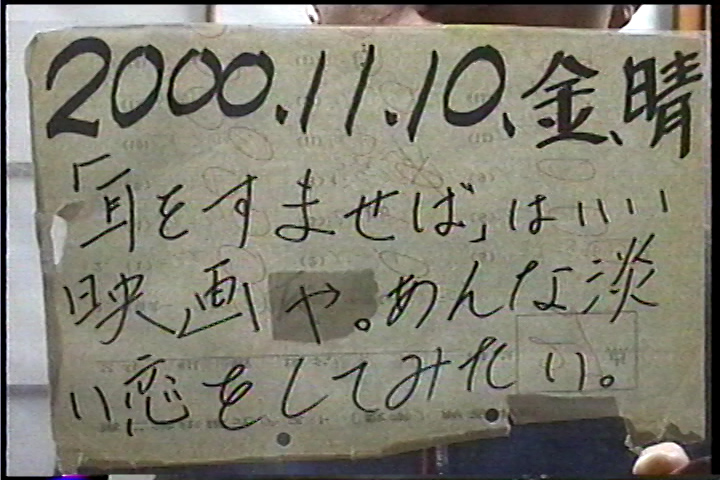 2000.11.10、金、晴
「耳をすませば」はいい
映画や。あんな淡
い恋をしてみたい。